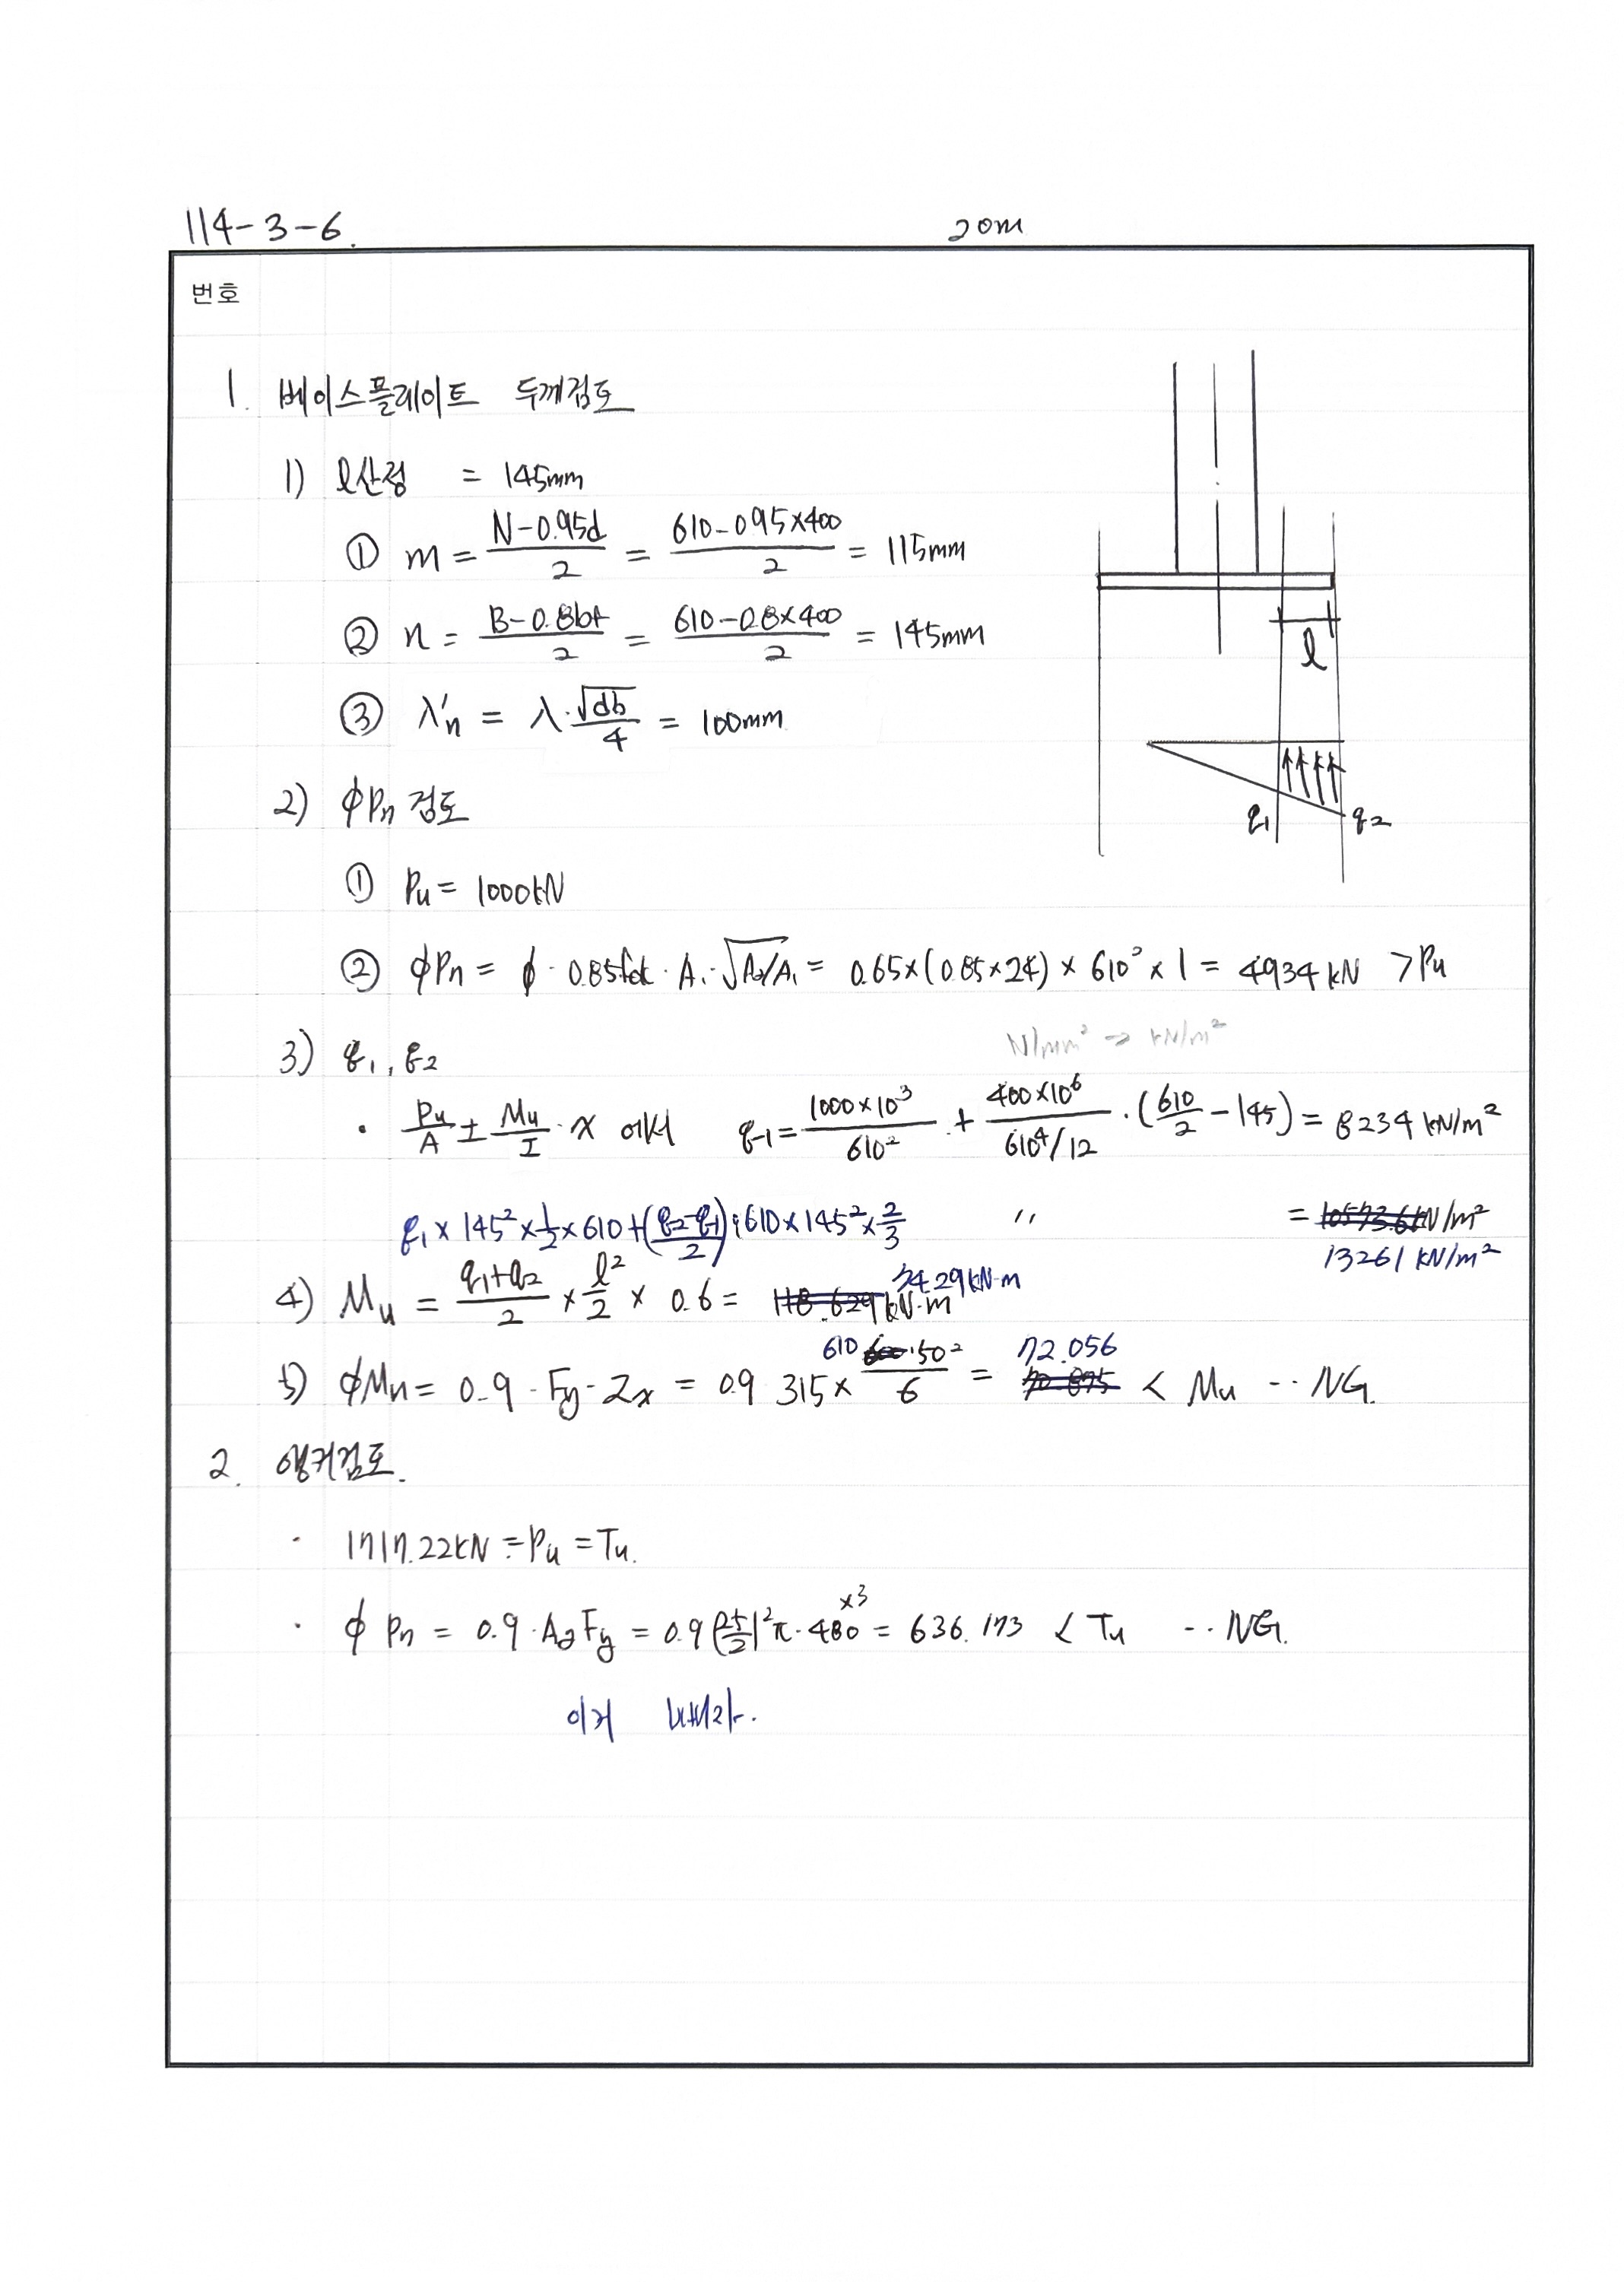 114-3-6. 20m
번호
1. 베이스플레이트 두께검토
1) l산정 = 145mm
① m = (N-0.95d)/2 = (610-0.95×400)/2 = 115mm
② n = (B-0.8bf)/2 = (610-0.8×400)/2 = 145mm
③ λ'n = λ·√db/4 = 100mm
l
2) φPn 검토
q1 q2
① Pu = 1000kN
② φPn = φ·0.85fck·A1·√A2/A1 = 0.65×(0.85×24)×610²×1 = 4934kN >Pu
3) q1, q2
N/mm² → kN/m²
· Pu/A ± Mu/I · x 에서 q1 = 1000×10³/610² + 400×10⁶/(610⁴/12) · (610/2 - 145) = 8234 kN/m²
q1×145²×1/2×610+((q2-q1)/2)·610×145²×2/3 〃 = 10573.6kN/m²
13261 kN/m²
4) Mu = (q1+q2)/2 × l²/2 × 0.6 = 118.629kN·m 74.29kN·m
5) φMn = 0.9·Fy·Zx = 0.9 315× 610 600·50²/6 = 70.875 72.056 < Mu ·· NG.
2. 앵커검토.
· 1717.22kN = Pu = Tu.
· φPn = 0.9·AgFy = 0.9(25/2)²π·480 ×3 = 636.173 < Tu ·· NG.
이거